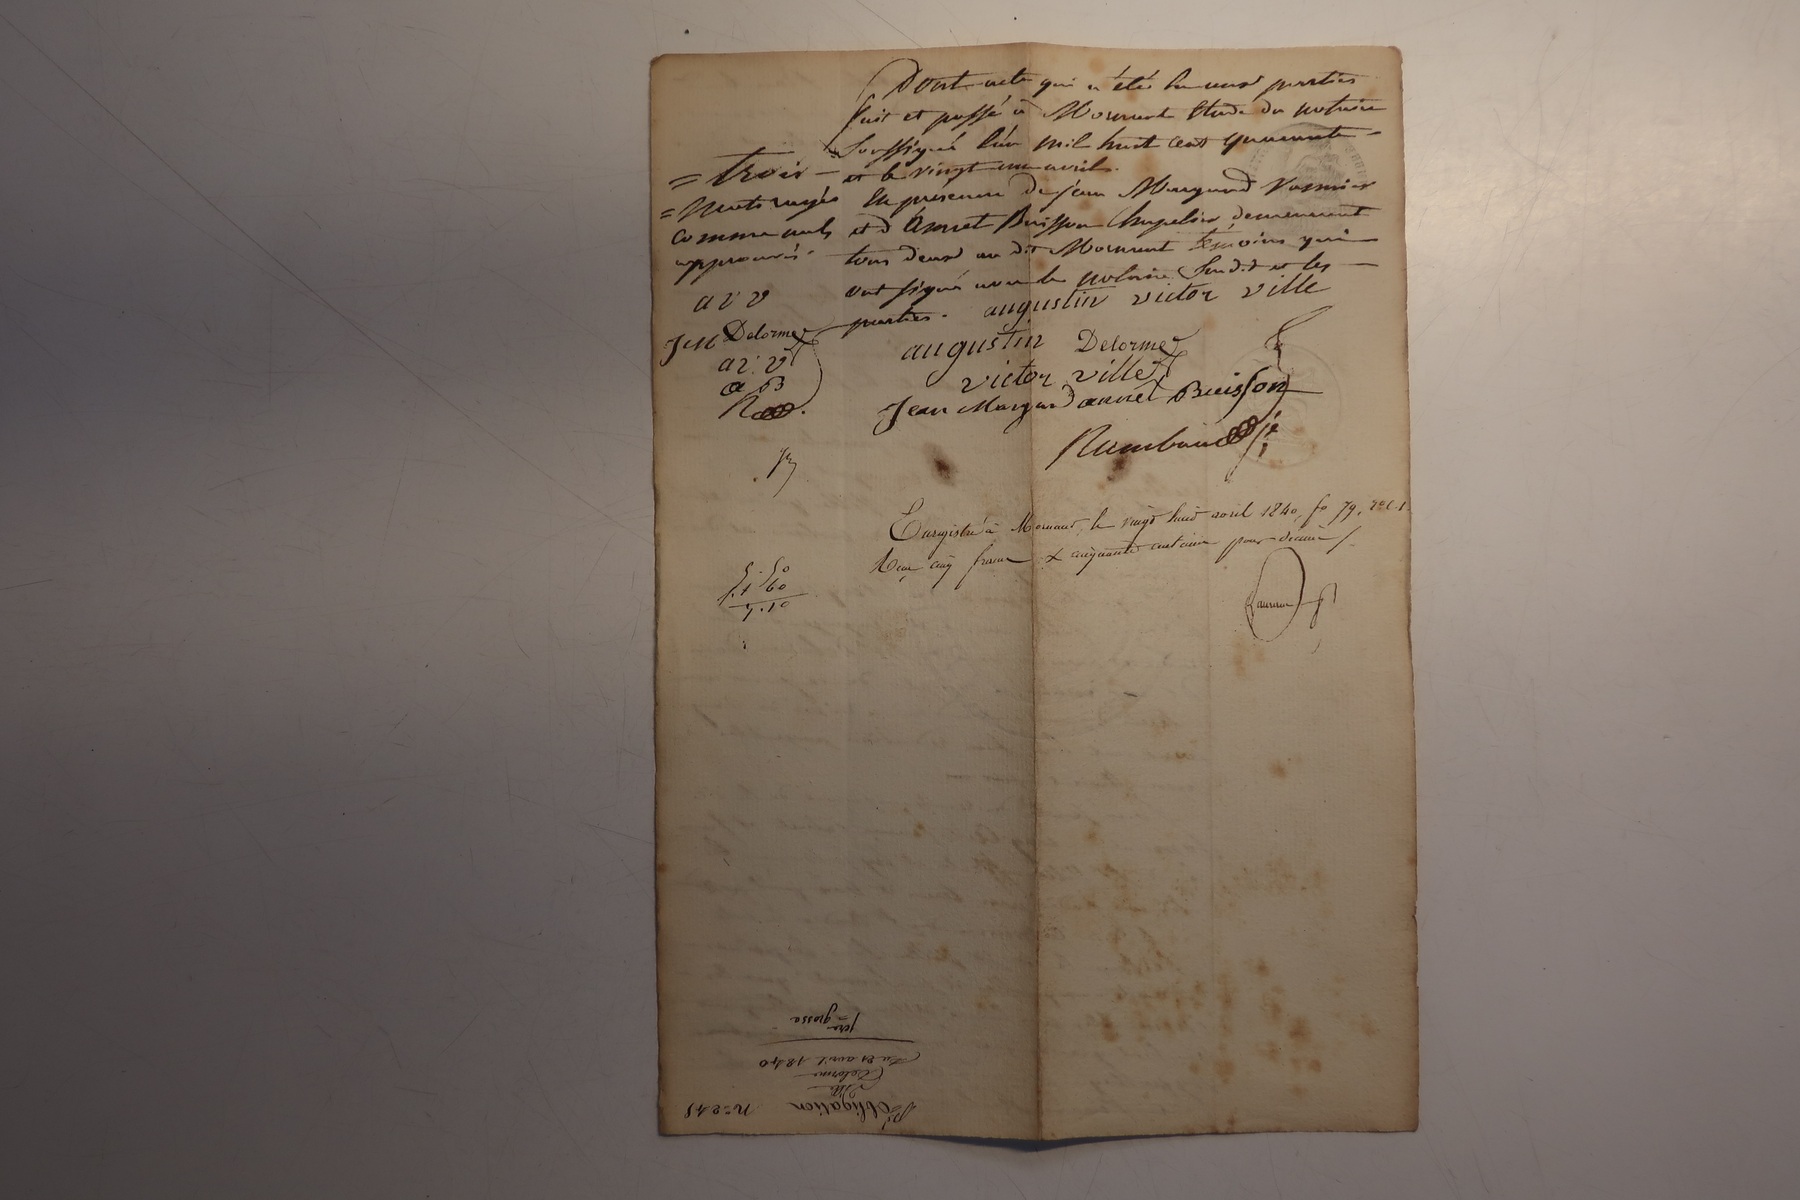 Dont acte qui a été lu aux parties
fait et passé à Mornant Etude du notaire
soussigné l'an mil huit cent quarante
et le vingt un avril.
En présence de Jean Margand
et d'Annet Buisson Chapelier demeurant
tous deux au dit Mornant témoins qui
ont signé avec le notaire Susdit et les
parties. augustin victor ville
= trois
= Mots rayés
comme nuls
approuvés.
a v v
JM Delorme
a v. v
a B
augustin Delorme
victor ville
Jean Margand annet Buisson
Enregistré à Mornant le vingt huit avril 1840, fo 79,
Reçu cinq francs & cinquante centimes pour décime
5.50
60
Nº 248
Obligation
Ville
Delorme
Du 21 avril 1840
1ere grosse